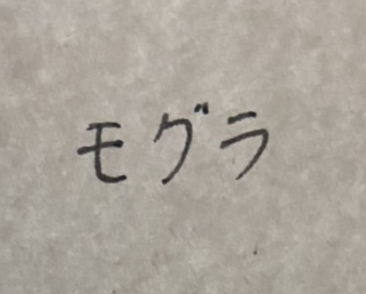 モグラ